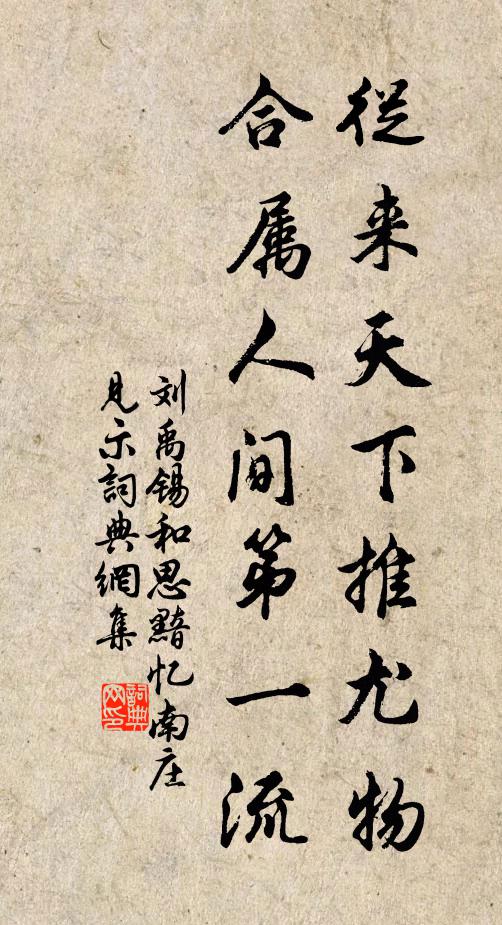 従来天下推尤物
合属人间第一流
刘禹锡和思黯忆南庄
見示詞典網集
詞典
网印